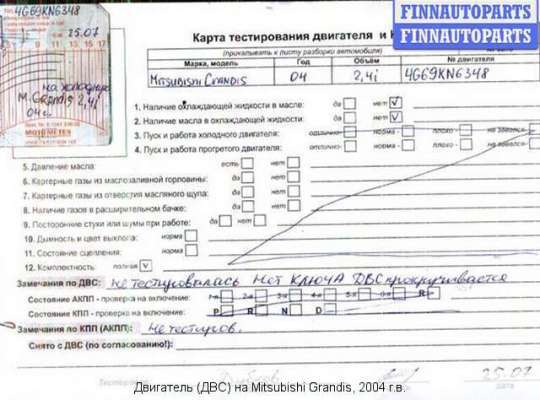 4G69KN6348
25.07
10 11 12 13 14 15 16 17
на холодную
M. GRANDIS 2,4i
04г.
MOTOMETER
FINNAUTOPARTS
FINNAUTOPARTS
Карта тестирования двигателя и
(прикалывать к листу разборки автомобиля)
Марка, модель Год Объём № двигателя
MITSUBISHI GRANDIS 04 2,4i 4G69KN6348
1. Наличие охлаждающей жидкости в масле: да нет V
2. Наличие масла в охлаждающей жидкости: да нет V
3. Пуск и работа холодного двигателя: отлично норма плохо не завелся
4. Пуск и работа прогретого двигателя: отлично норма плохо не завелся
5. Давление масла: есть нет
6. Картерные газы из маслозаливной горловины: да нет
7. Картерные газы из отверстия масляного щупа: да нет
8. Наличие газов в расширительном бачке: да нет
9. Посторонние стуки или шумы при работе: да нет
10. Дымность и цвет выхлопа: норма
11. Состояние сцепления: норма
12. Комплектность: полная V
Замечания по ДВС: Не тестировалась Нет ключа ДВС прокручивается
Состояние АКПП - проверка на включение: 1-я 2-я 3-я 4-я 5-я 6-я R
Состояние КПП - проверка на включение: P R N D
Замечания по КПП (АКПП): Не тестиров.
Снято с ДВС (по согласованию!):
25.07
дата
Двигатель (ДВС) на Mitsubishi Grandis, 2004 г.в.